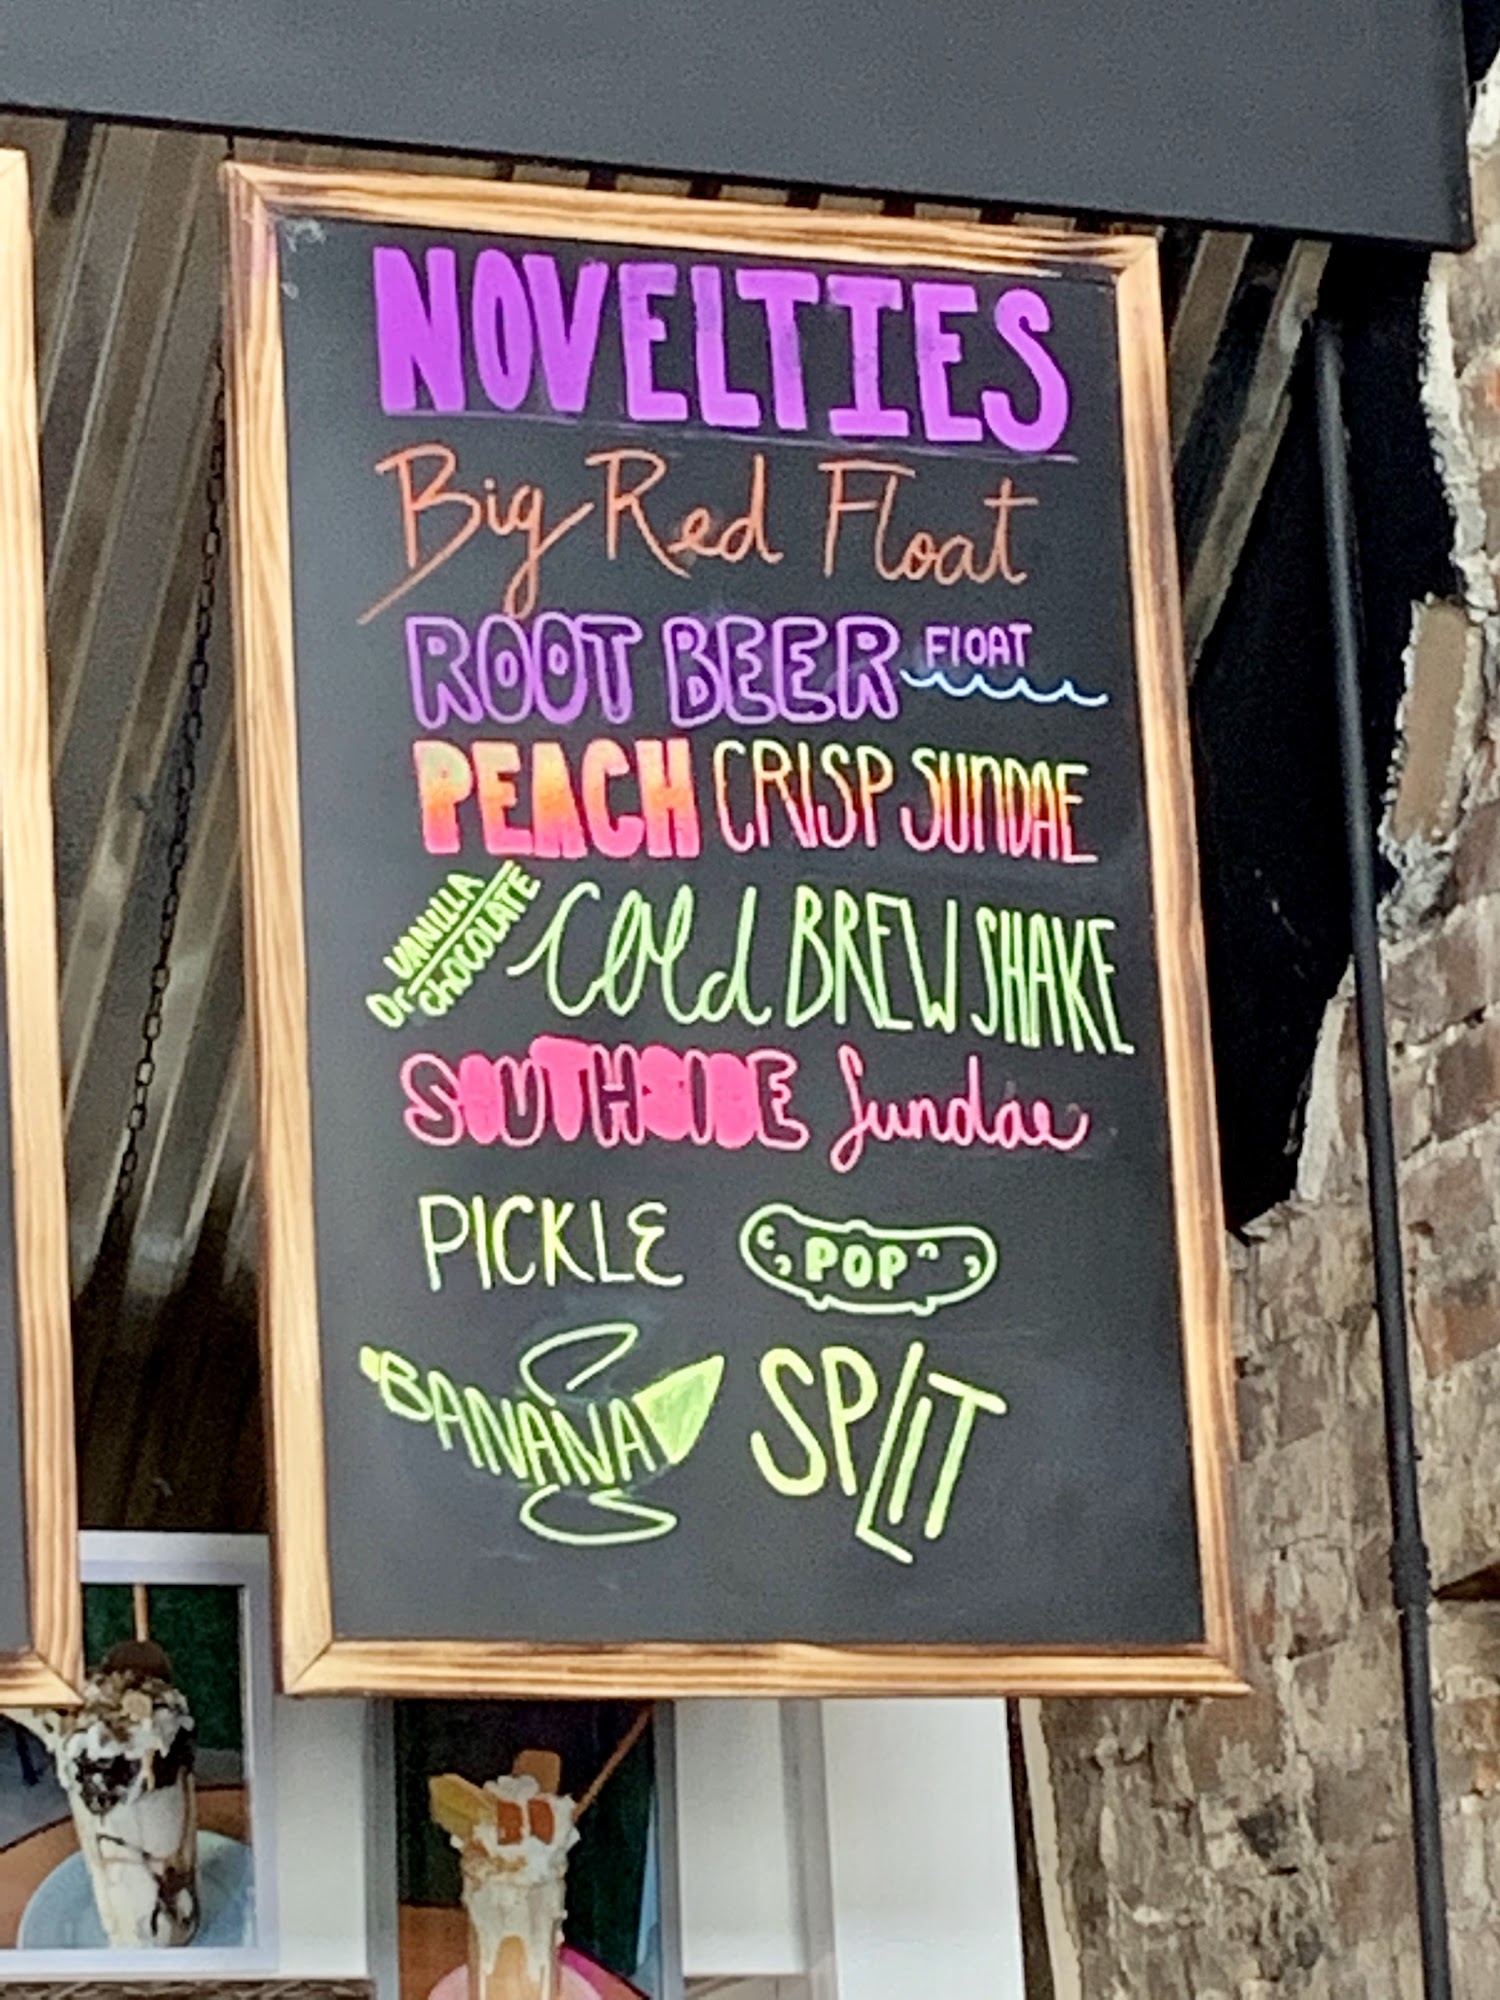 NOVELTIES
Big Red Float
ROOT BEER FLOAT
PEACH CRISP SUNDAE
VANILLA
Or CHOCOLATE
Cold BREW SHAKE
SOUTHSIDE Sundae
PICKLE POP
BANANA SPLIT